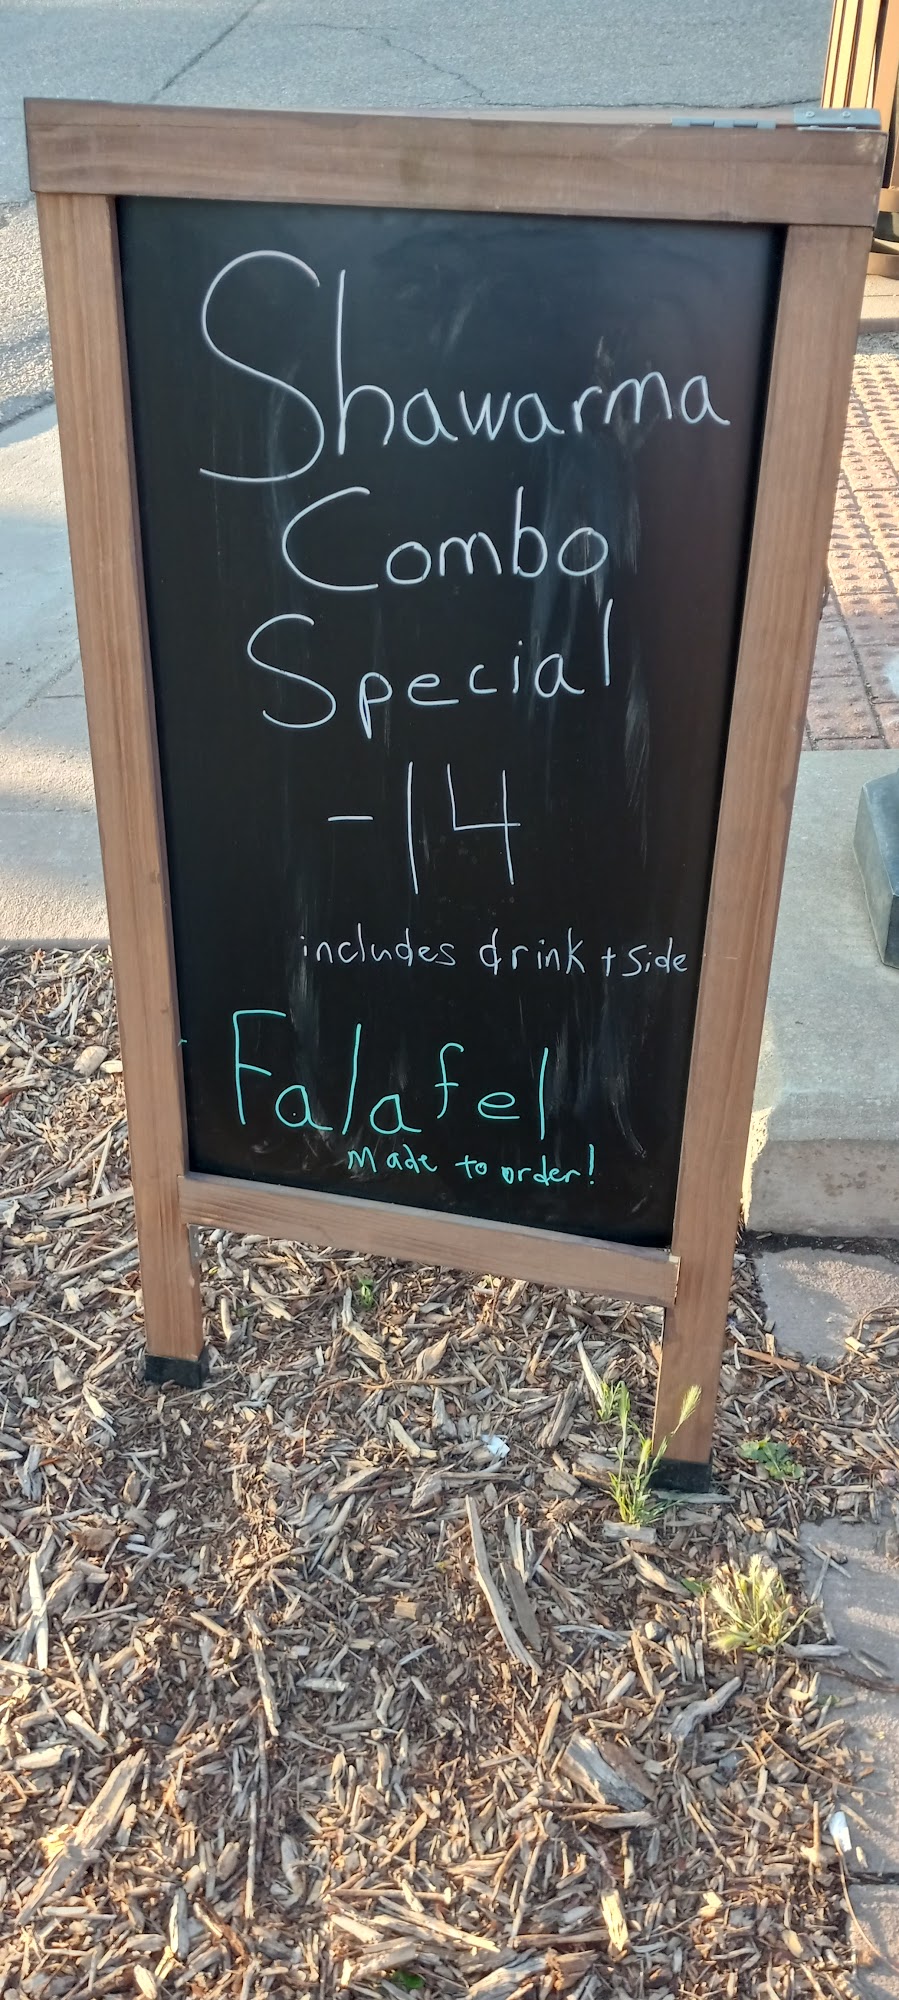 Shawarma
Combo
Special
-14
includes drink + side
Falafel
Made to order!